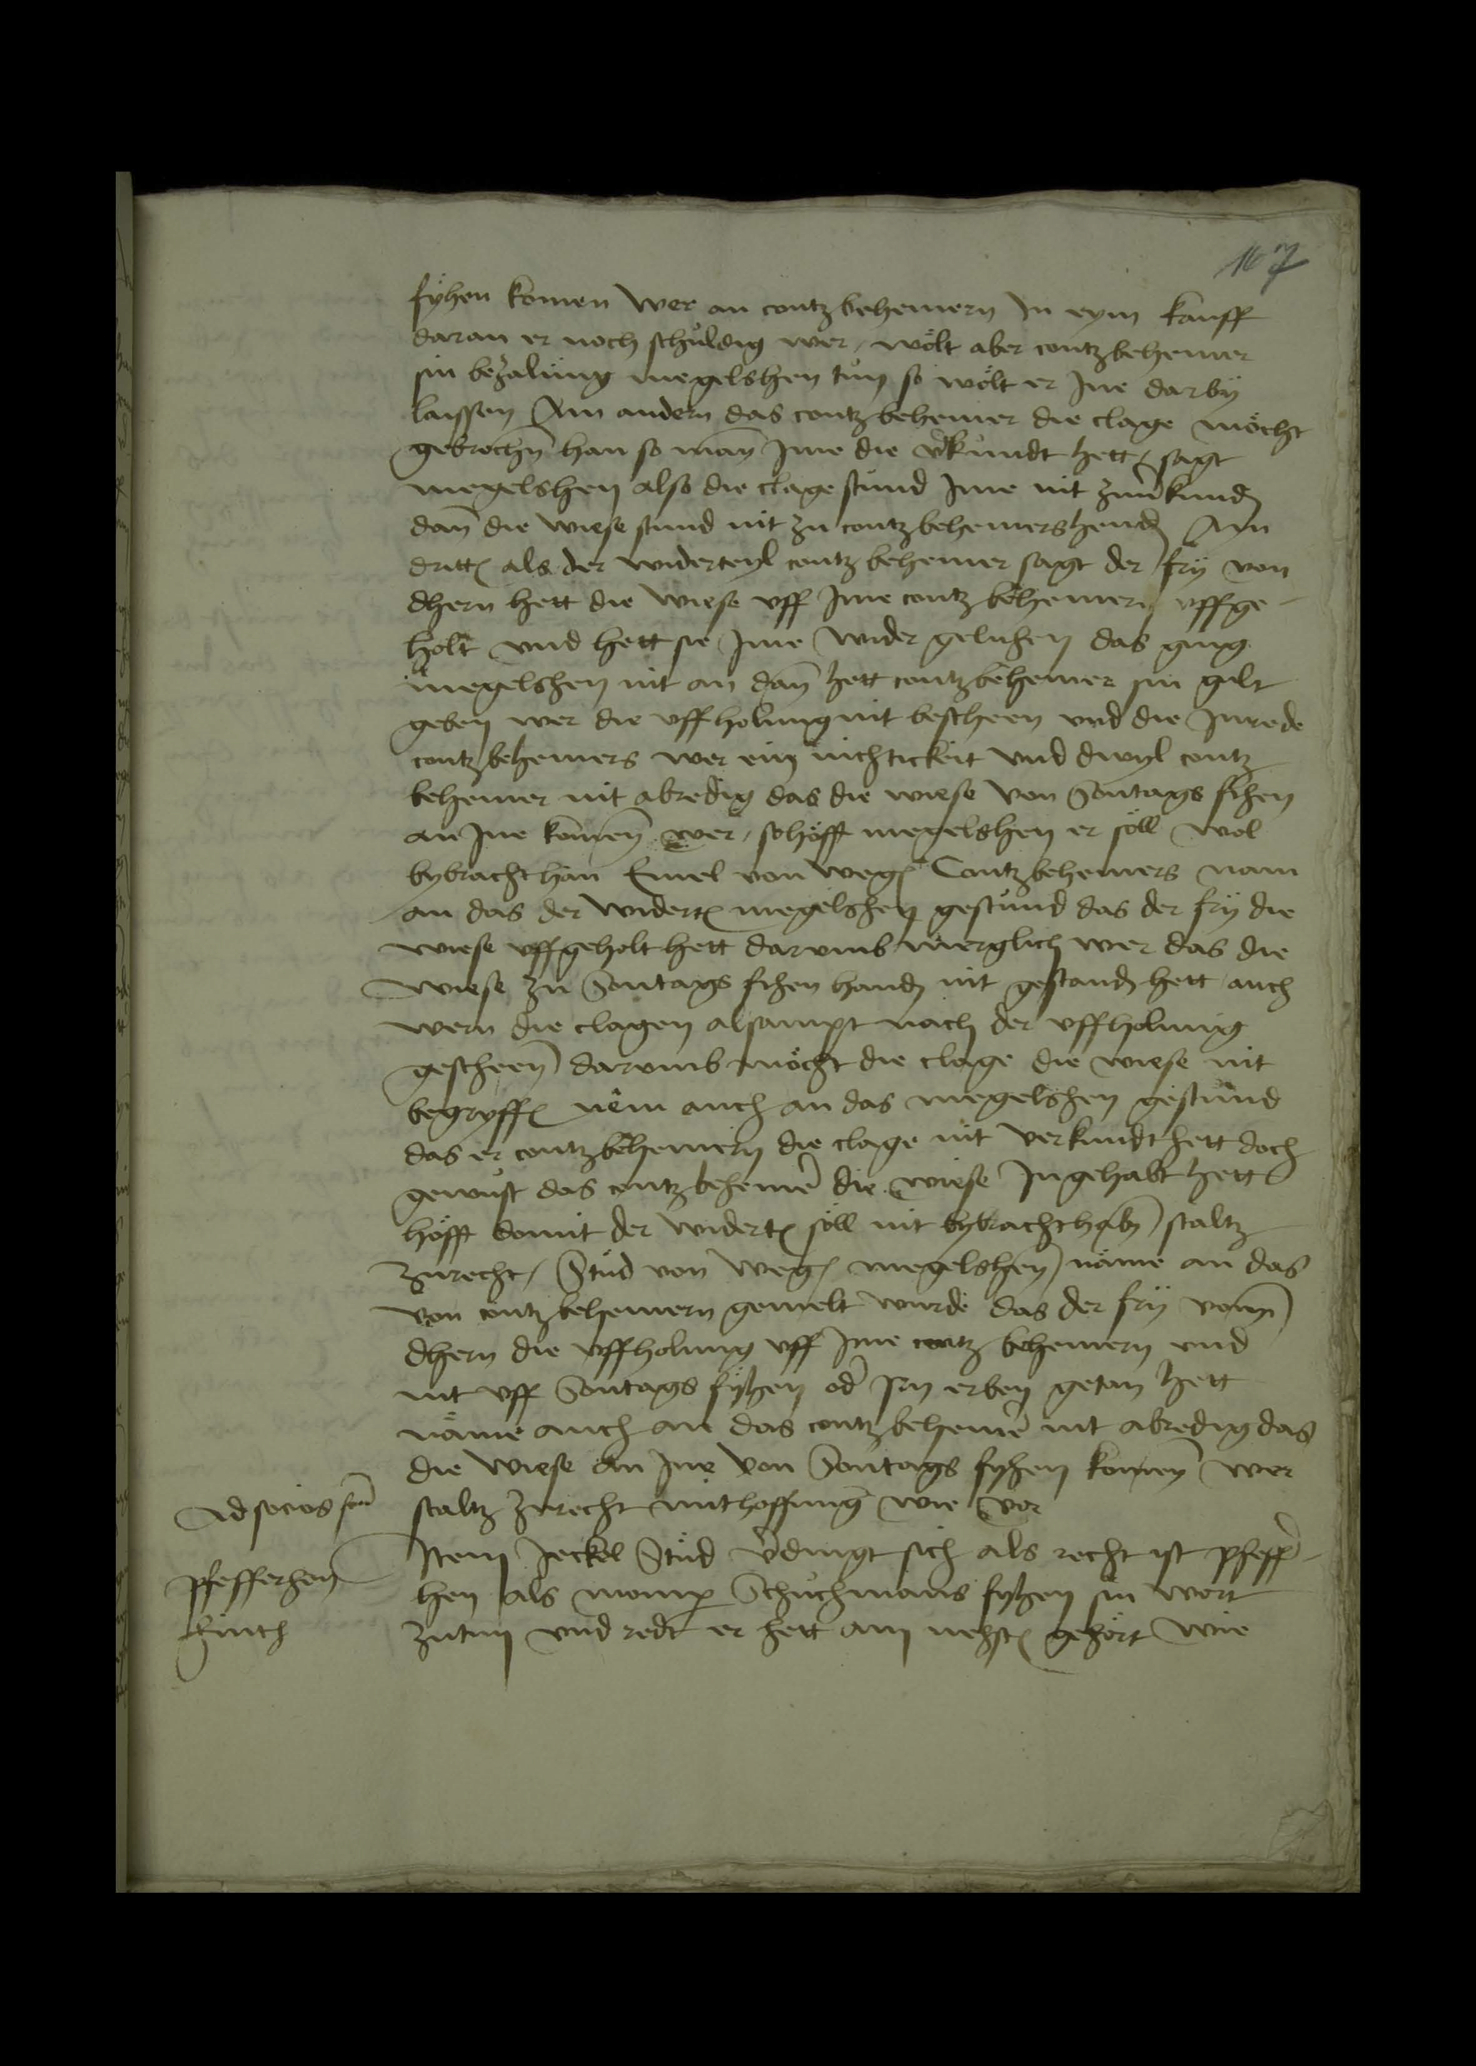 167
fyhen komen wer an contz behemern in eym kauff
daran er noch schuldig wer, wölt aber contz behemer
sin bezalung megelshen tun so wölt er Ine darby
laissen Am andern das contz behemer die clage möcht
gebrochen han so man Ime die v̓kundt hett, sagt
megelshen also die clage stund Ime nit zuu̓kund
dan̄ die wiese stund nit zu contz behemers hend Am
dritt als der widerteyl contz behemer sagt der fry von
dhern hett die wiese uff Ime contz behemern uffge-
holt und hett sie Ime wider geluhen das ging
megelshen nit an dan̄ hett contz behemer sin gult
geben wer die uffholung nit bescheen und die Inrede
contz behemers wer ein nichtickeit und dwyl contz
behemer nit abredig das die wiese von Sontags fihen
an Ine komen wer, so höfft megelshen er söll wol
bybracht han Emel von weg Contz behemers nam
an das der widert megelshen gestund das der fry die
wiese uffgeholt hett darumb merglich wer das die
wiese zu Sontags fihen hand nit gestand hett auch
wern die clagen alsampt nach der uffholung
gescheen darumb möcht die clage die wiese nit
begryff nem auch an das megelshen gestund
das er contz behemern die clage nit verkundt hett doch
gewust das contz behemer die wiese Ingehabt hett
höfft domit der widert söll nit bybracht haben staltz
zurecht, Stud von weg megelshen näme an das
von contz behemern gemelt wurde das der fry vonn
dhern die uffholung uff Ime contz behemern und
nit uff Sontags fyhen od̓ Irn erben getan hett
näme auch an das contz behemer nit abredig das
die wiese an Ine von Sontags fyhen komen wer
staltz zurecht mit hoffung wie vor
Ad socios
Item Jeckel Stud v̓dingt sich als recht ist pfeffer-
Pfefferhen
hen als momp Schuchmans fyhen sin wort
zutun und redt er hett am nehst gehört wie